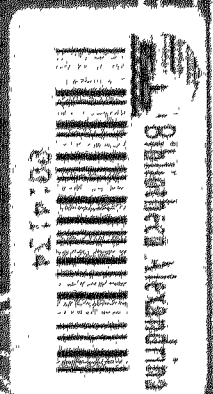 Bibliotheca Alexandrina